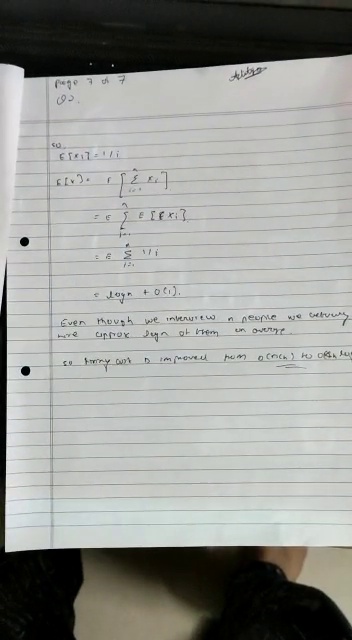 page 7 of 7
Q2.
so
E[xi] = 1/i
E[x] = E [ n Σ i=1 xi ]
= E n Σ i=1 E[xi]
= E n Σ i=1 1/i
= logn + O(1).
Even though we interview n people we actually
hire approx logn of them on average.
so hiring cost is improved from O(nCh) to